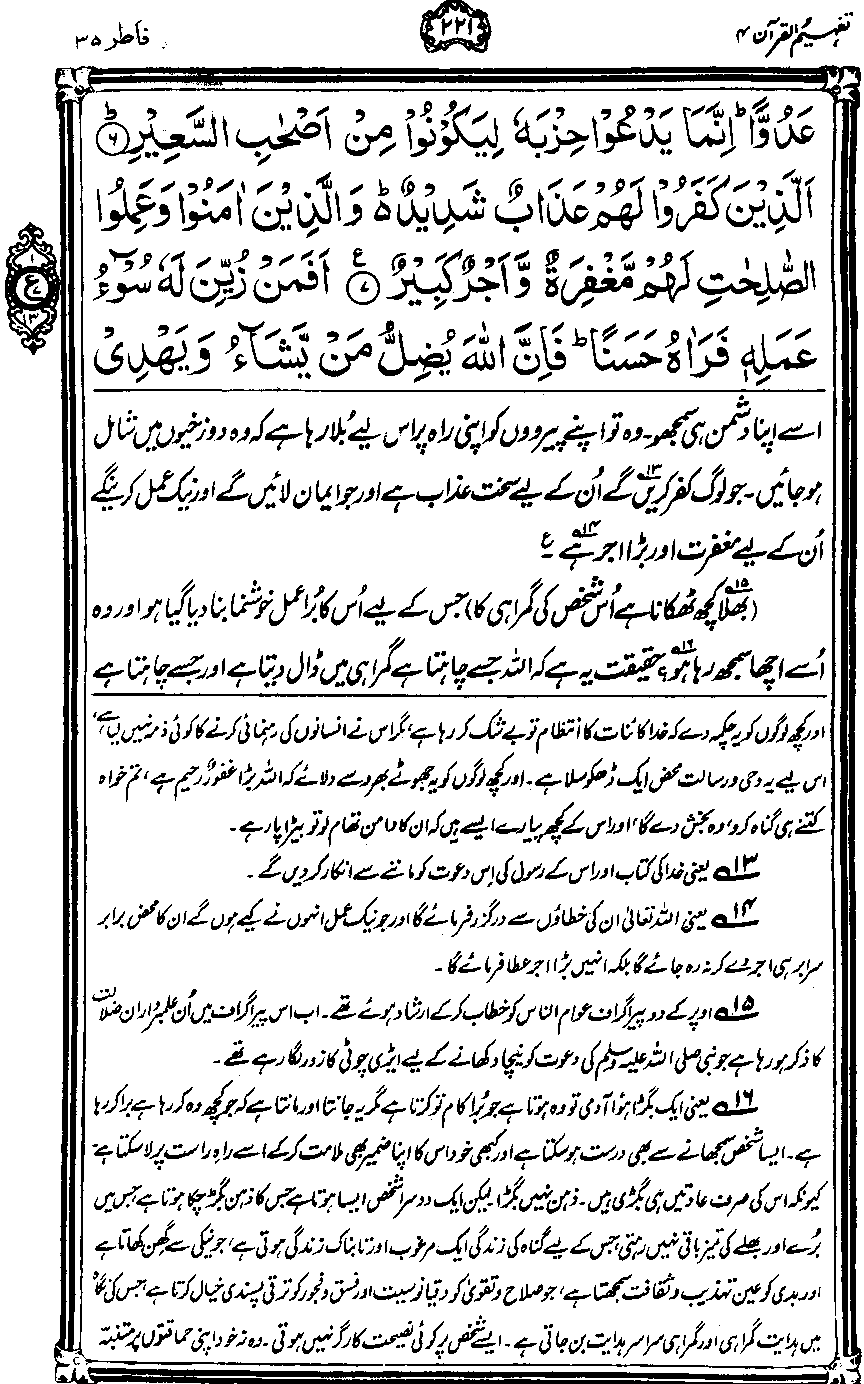 تفہیم القرآن ۴
۲۲۱
فاطر ۳۵
عَدُوًّا ؕ اِنَّمَا يَدْعُوْا حِزْبَهٗ لِيَكُوْنُوْا مِنْ اَصْحٰبِ السَّعِيْرِ ؕ﴿۶﴾
اَلَّذِيْنَ كَفَرُوْا لَهُمْ عَذَابٌ شَدِيْدٌ ؕ۬ وَ الَّذِيْنَ اٰمَنُوْا وَ عَمِلُوا
الصّٰلِحٰتِ لَهُمْ مَّغْفِرَةٌ وَّ اَجْرٌ كَبِيْرٌ ﴿۷﴾ ع اَفَمَنْ زُيِّنَ لَهٗ سُوْٓءُ
عَمَلِهٖ فَرَاٰهُ حَسَنًا ؕ فَاِنَّ اللّٰهَ يُضِلُّ مَنْ يَّشَآءُ وَ يَهْدِيْ
۱
ع
۱۳
اسے اپنا دشمن ہی سمجھو۔ وہ تو اپنے پیرووں کو اپنی راہ پر اس لیے بُلا رہا ہے کہ وہ دوزخیوں میں شامل
ہو جائیں۔ جو لوگ کفر کریں۱۳ گے اُن کے لیے سخت عذاب ہے اور جو ایمان لائیں گے اور نیک عمل کرینگے
اُن کے لیے مغفرت اور بڑا اجر ہے۱۴۔ ع
(بھلا۱۵ کچھ ٹھکانا ہے اُس شخص کی گمراہی کا) جس کے لیے اُس کا بُرا عمل خوشنما بنا دیا گیا ہو اور وہ
اُسے اچھا سمجھ رہا ہو۱۶؟ حقیقت یہ ہے کہ اللہ جسے چاہتا ہے گمراہی میں ڈال دیتا ہے اور جسے چاہتا ہے
اور کچھ لوگوں کو یہ چکمہ دے کہ خدا کائنات کا انتظام تو بے شک کر رہا ہے، مگر اس نے انسانوں کی رہنمائی کرنے کا کوئی ذمہ نہیں لیا ہے،
اس لیے یہ وحی و رسالت محض ایک ڈھکوسلا ہے۔ اور کچھ لوگوں کو یہ جھوٹے بھروسے دلائے کہ اللہ بڑا غفور رحیم ہے، تم خواہ
کتنے ہی گناہ کرو، وہ بخش دے گا، اور اس کے کچھ پیارے ایسے ہیں کہ ان کا دامن تھام لو تو بیڑا پار ہے۔
۱۳ یعنی خدا کی کتاب اور اس کے رسول کی اِس دعوت کو ماننے سے انکار کر دیں گے۔
۱۴ یعنی اللہ تعالیٰ ان کی خطاؤں سے درگزر فرمائے گا اور جو نیک عمل انہوں نے کیے ہوں گے ان کا محض برابر
سرابر ہی اجر دے کر نہ رہ جائے گا بلکہ انہیں بڑا اجر عطا فرمائے گا۔
۱۵ اوپر کے دو پیراگراف عوام الناس کو خطاب کر کے ارشاد ہوئے تھے۔ اب اس پیراگراف میں اُن علمبرداران ضلالت
کا ذکر ہو رہا ہے جو نبی صلی اللہ علیہ وسلم کی دعوت کو نیچا دکھانے کے لیے ایڑی چوٹی کا زور لگا رہے تھے۔
۱۶ یعنی ایک بگڑا ہوا آدمی تو وہ ہوتا ہے جو بُرا کام تو کرتا ہے مگر یہ جانتا اور مانتا ہے کہ جو کچھ وہ کر رہا ہے برا کر رہا
ہے۔ ایسا شخص سمجھانے سے بھی درست ہو سکتا ہے اور کبھی خود اس کا اپنا ضمیر بھی ملامت کر کے اسے راہِ راست پر لا سکتا ہے
کیونکہ اس کی صرف عادتیں ہی بگڑی ہیں۔ ذہن نہیں بگڑا لیکن ایک دوسرا شخص ایسا ہوتا ہے جس کا ذہن بگڑ چکا ہوتا ہے جس میں
بُرے اور بھلے کی تمیز باقی نہیں رہتی، جس کے لیے گناہ کی زندگی ایک مرغوب اور تابناک زندگی ہوتی ہے، جو نیکی سے گھِن کھاتا ہے
اور بدی کو عین تہذیب و ثقافت سمجھتا ہے، جو صلاح و تقویٰ کو دقیانوسیت اور فسق و فجور کو ترقی پسندی خیال کرتا ہے، جس کی نگاہ
میں ہدایت گمراہی اور گمراہی سراسر ہدایت بن جاتی ہے۔ ایسے شخص پر کوئی نصیحت کارگر نہیں ہوتی۔ وہ نہ خود اپنی حماقتوں پر متنبہ